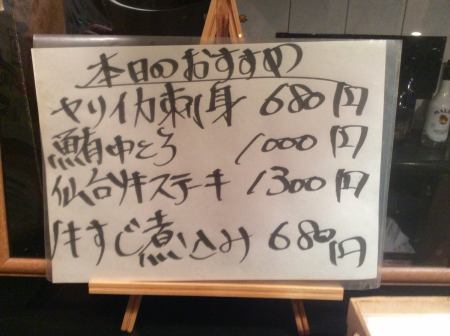 本日のおすすめ
ヤリイカ刺身 680円
鮪中とろ 1000円
仙台牛ステーキ 1300円
牛すじ煮込み 680円